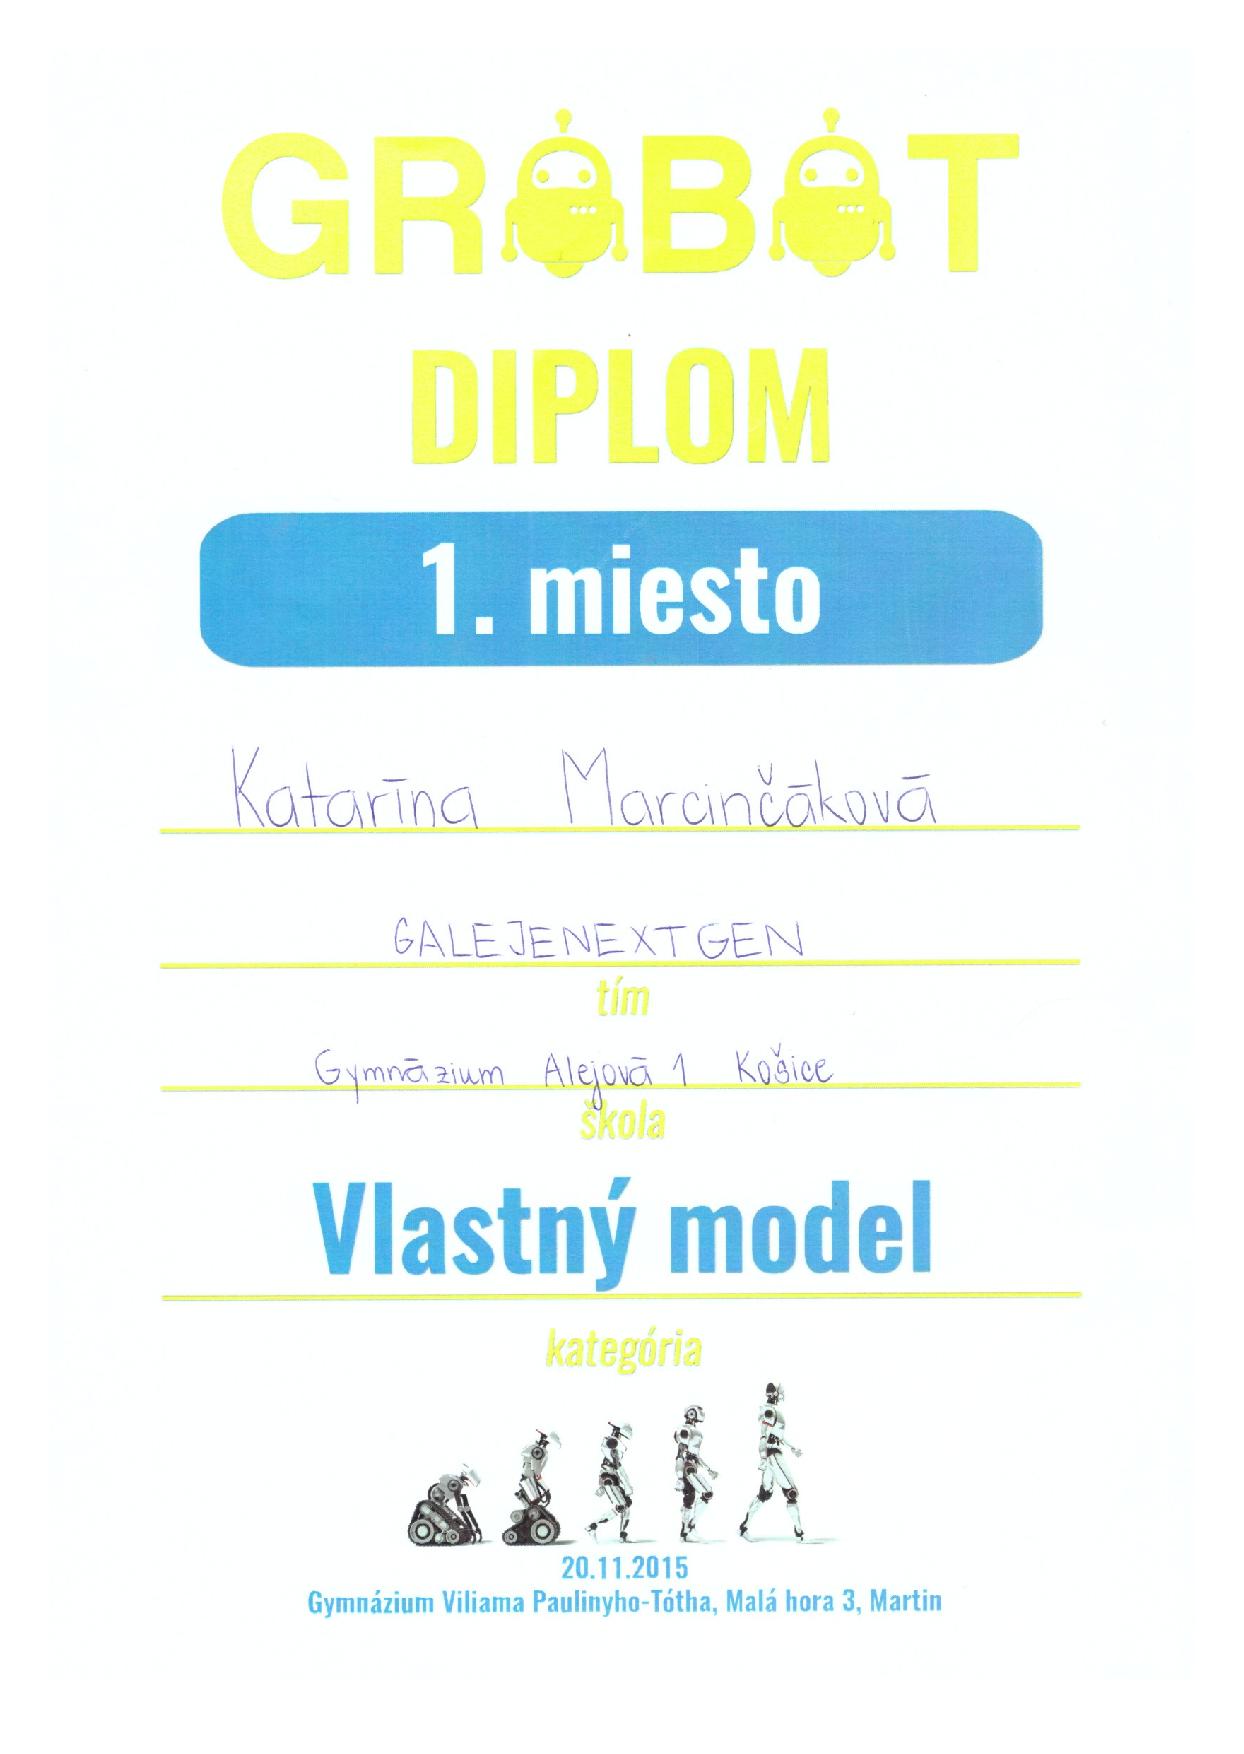 GROBOT
DIPLOM
1. miesto
Katarína Marcinčáková
GALEJENEXTGEN
tím
Gymnázium Alejová 1 Košice
škola
Vlastný model
kategória
20.11.2015
Gymnázium Viliama Paulinyho-Tótha, Malá hora 3, Martin